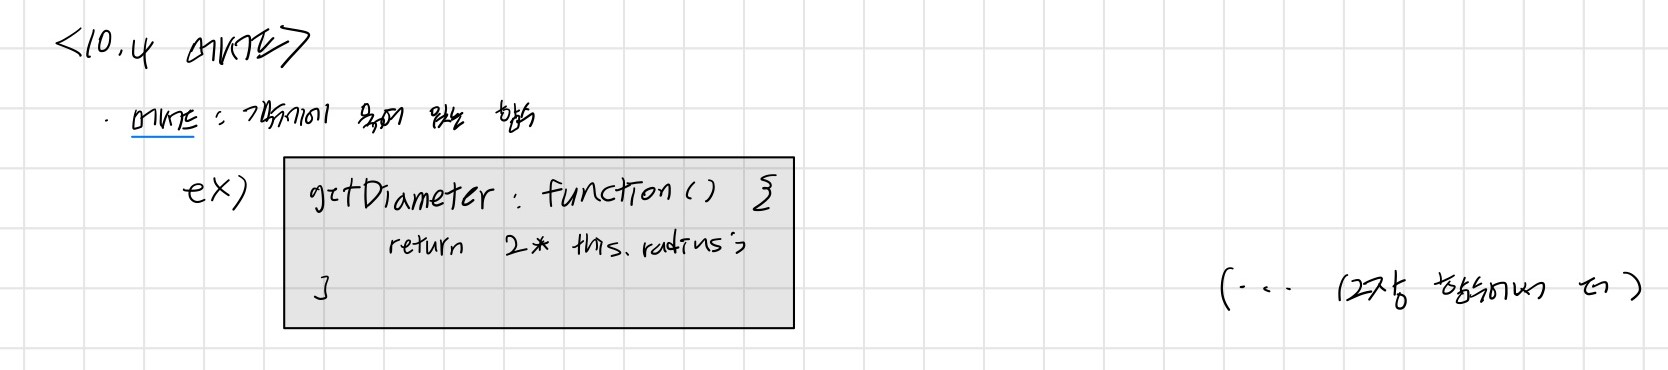 <10.4 메서드>
· 메서드 : 객체에 묶여 있는 함수
ex)
getDiameter : function () {
return 2 * this.radius;
}
(... 12장 함수에서 더)